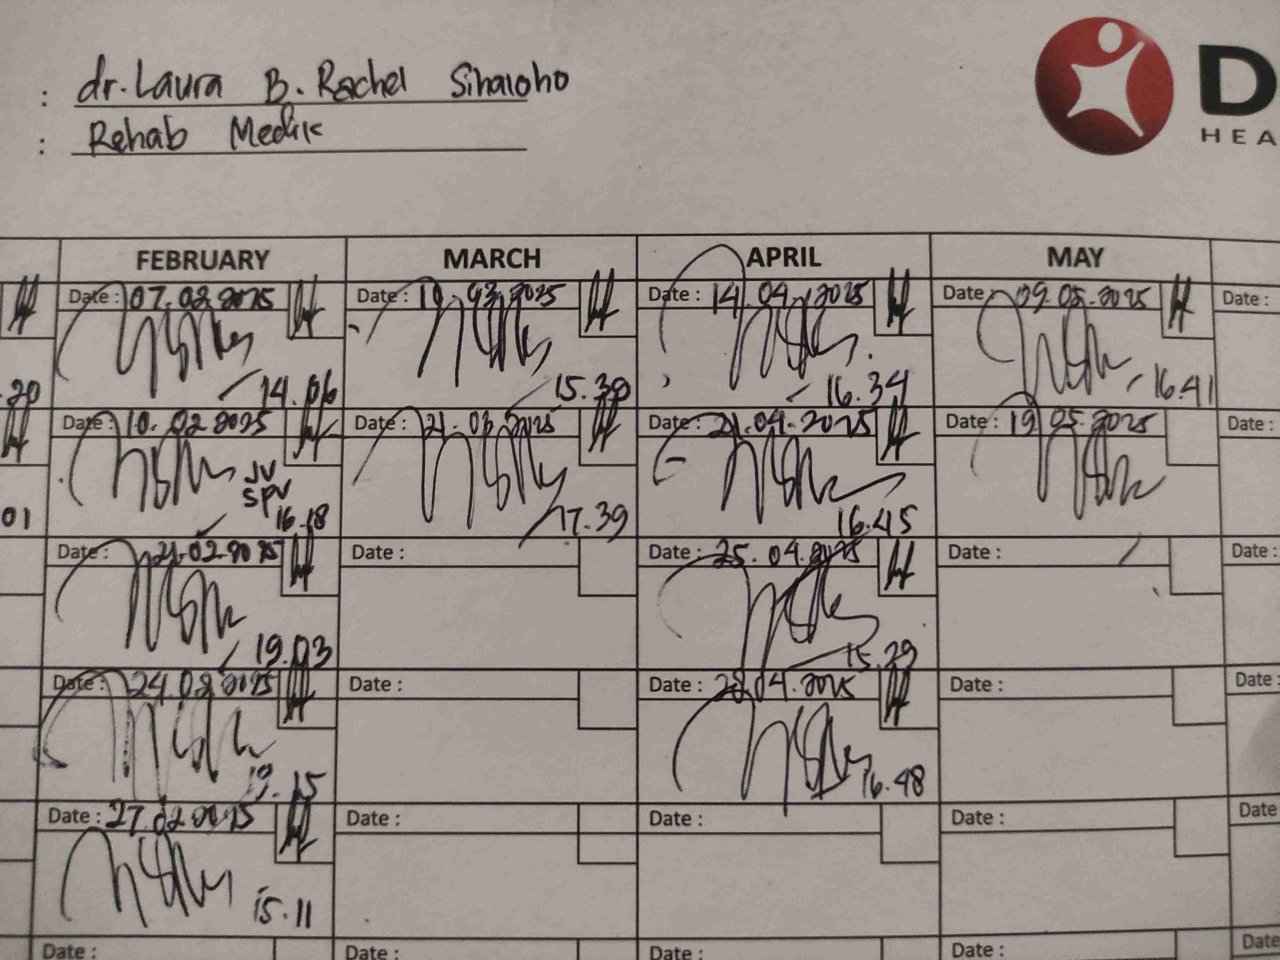 : dr. Laura B. Rachel Sihaloho
: Rehab Medik
D
HEA
FEBRUARY MARCH APRIL MAY
Date : 07.02.2025 Date : 10.03.2025 Date : 14.04.2025 Date 09.05.2025 Date :
.20 14.06 15.39 16.34 16.41
Date : 10.02.2025 Date : 21.03.2025 Date : 21.04.2025 Date : 19.05.2025 Date :
JV
SPV
01 16.18 17.39 16.45
Date : 21.02.2025 Date : Date : 25.04.2025 Date : Date :
19.03 15.29
Date : 24.02.2025 Date : Date : 28.04.2025 Date : Date :
19.15 16.48
Date : 27.02.2025 Date : Date : Date : Date
15.11
Date : Date : Date : Date : Date